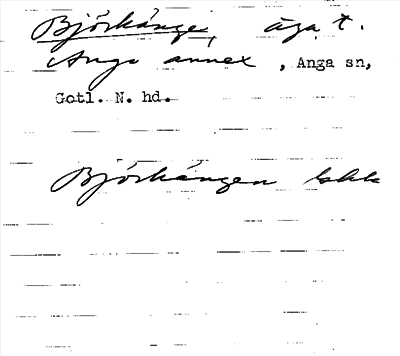 Björkänge, äga t.
Anga annex, Anga sn,
Gotl. N. hd.
Björkängen lskk